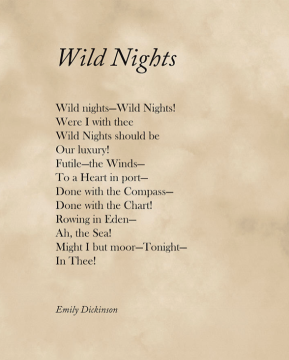 Wild Nights
Wild nights—Wild Nights!
Were I with thee
Wild Nights should be
Our luxury!
Futile—the Winds—
To a Heart in port—
Done with the Compass—
Done with the Chart!
Rowing in Eden—
Ah, the Sea!
Might I but moor—Tonight—
In Thee!
Emily Dickinson